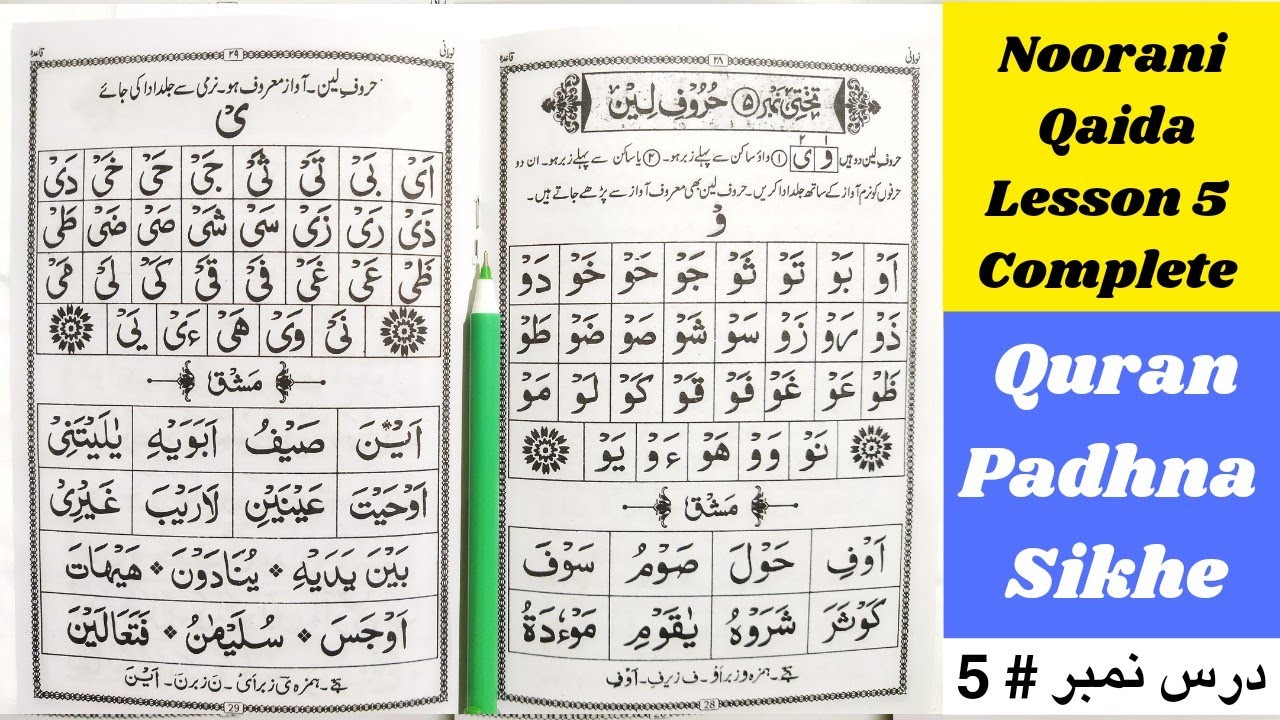 نورانی
۲۸
قاعدہ
تختی نمبر ۵ حُرُوفِ لِیْن
حروف لین دو ہیں وْ یْ ① واؤ ساکن سے پہلے زبر ہو۔ ② یا ساکن سے پہلے زبر ہو۔ ان دو
حرفوں کو نرم آواز کے ساتھ جلد ادا کریں۔ حروف لین بھی معروف آواز سے پڑھے جاتے ہیں۔
وْ
اَوْ بَوْ تَوْ ثَوْ جَوْ حَوْ خَوْ دَوْ
ذَوْ رَوْ زَوْ سَوْ شَوْ صَوْ ضَوْ طَوْ
ظَوْ عَوْ غَوْ فَوْ قَوْ كَوْ لَوْ مَوْ
نَوْ وَوْ هَوْ ءَوْ يَوْ
مَشق
اَوْفِ حَوْلَ صَوْمُ سَوْفَ
كَوْثَرَ شَرَوْهُ يٰقَوْمِ مَوْءٗدَةُ
ہجے۔ ہمزہ و زبر اَوْ۔ ف زیر فِ۔ اَوْفِ
28
نورانی
۲۹
قاعدہ
حروفِ لین۔ آواز معروف ہو۔ نرمی سے جلد ادا کی جائے
یْ
اَیْ بَیْ تَیْ ثَیْ جَیْ حَیْ خَیْ دَیْ
ذَیْ رَیْ زَیْ سَیْ شَیْ صَیْ ضَیْ طَیْ
ظَیْ عَیْ غَیْ فَیْ قَیْ كَیْ لَیْ مَیْ
نَیْ وَیْ هَیْ ءَیْ يَیْ
مَشق
اَيْنَ صَيْفُ اَبَوَيْهِ يٰلَيْتَنِیْ
اَوْحَيْتَ عَيْنَيْنِ لَارَيْبَ غَيْرِیْ
بَيْنَ يَدَيْهِ * يُنَادَوْنَ * هَيْهَاتَ
اَوْجَسَ * سُلَيْمٰنُ * فَتَعَالَيْنَ
ہجے۔ ہمزہ ی زبر اَیْ۔ نَ زبر نَ۔ اَيْنَ
29
Noorani
Qaida
Lesson 5
Complete
Quran
Padhna
Sikhe
درس نمبر # 5